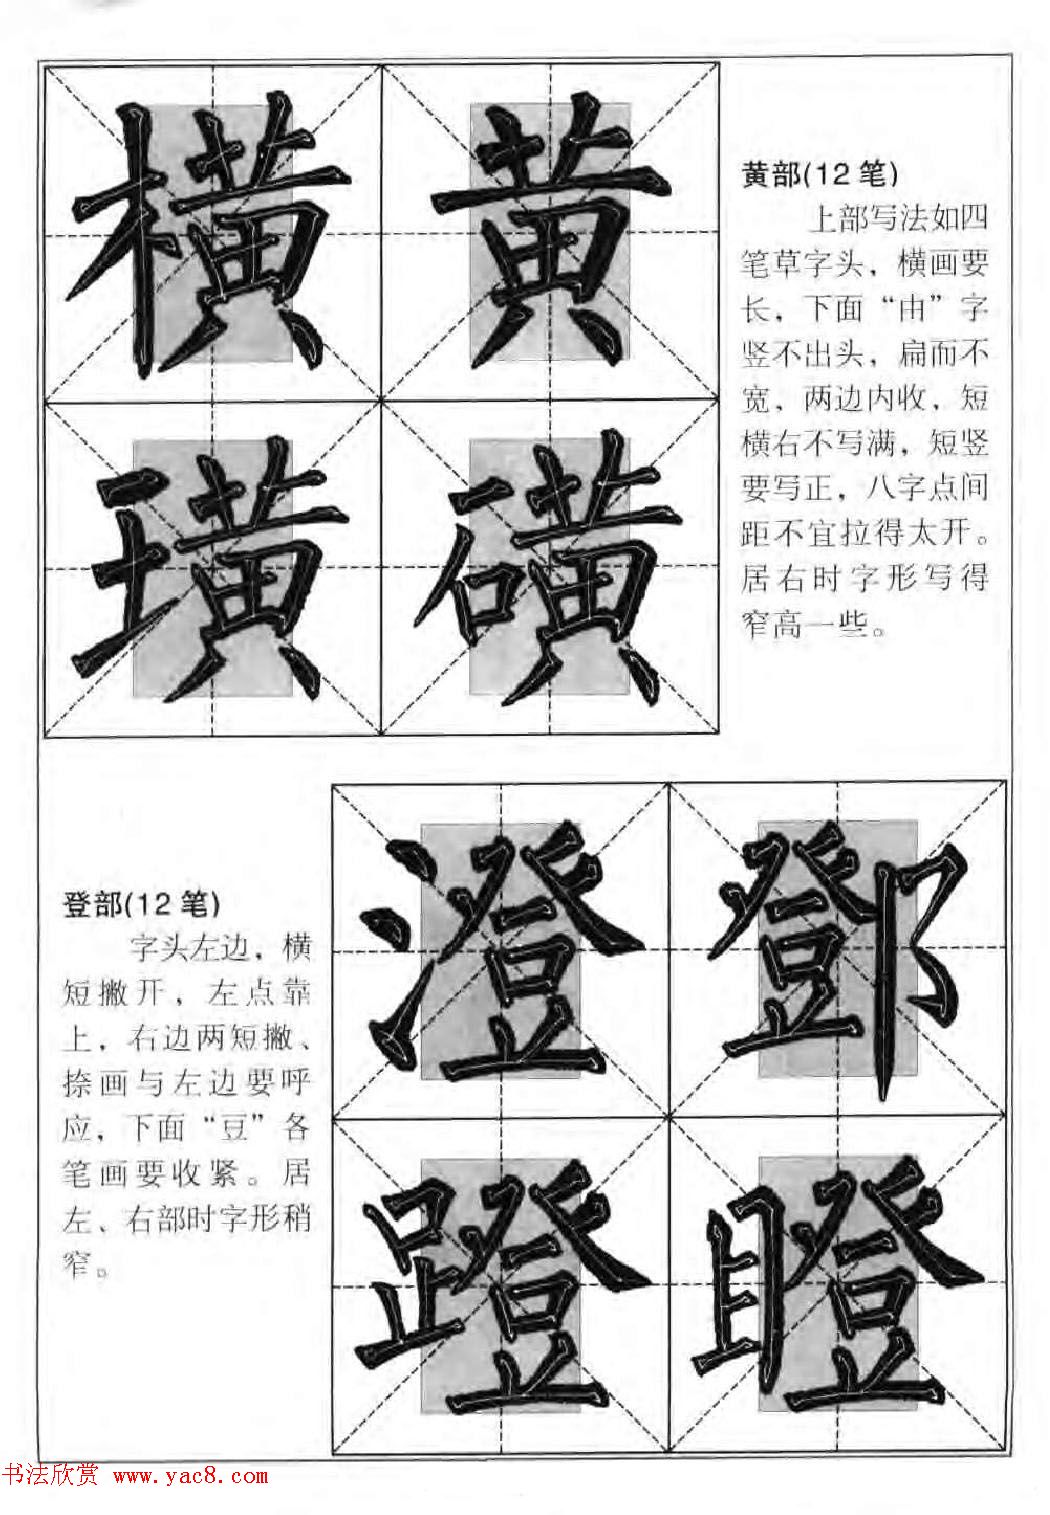 横 黄
璜 磺
黄部(12笔)
上部写法如四
笔草字头，横画要
长，下面“由”字
竖不出头，扁而不
宽，两边内收，短
横右不写满，短竖
要写正，八字点间
距不宜拉得太开。
居右时字形写得
窄高一些。
登部(12笔)
字头左边，横
短撇开，左点靠
上，右边两短撇、
捺画与左边要呼
应，下面“豆”各
笔画要收紧。居
左、右部时字形稍
窄。
澄 鄧
蹬 瞪
书法欣赏 www.yac8.com